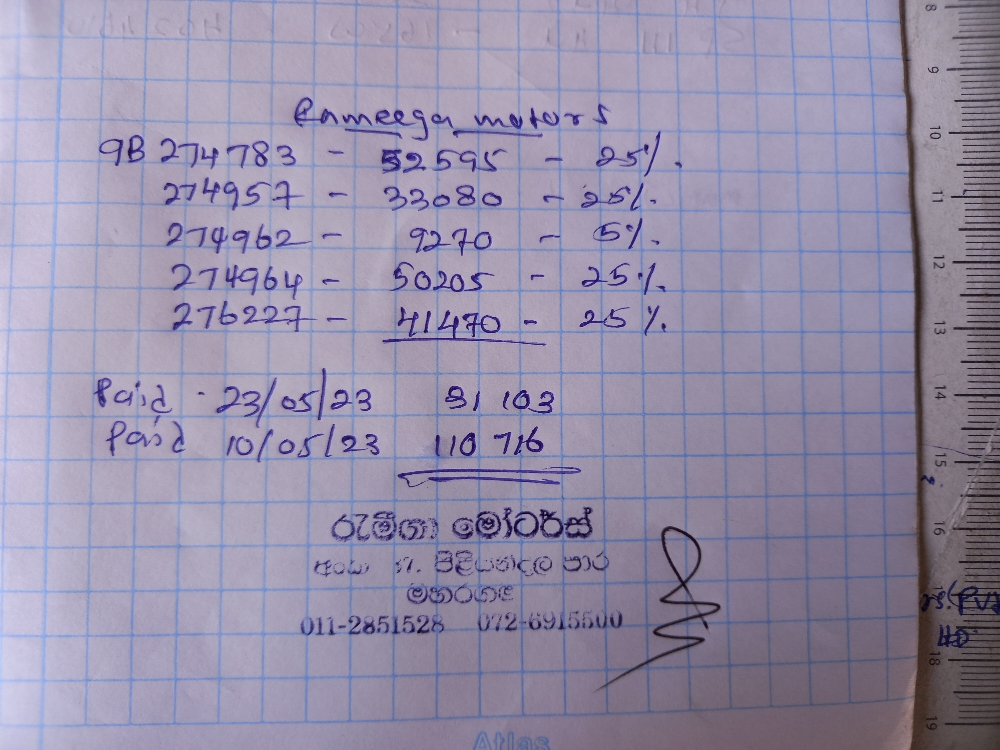 Rameega motors
9B 274783 - 52595 - 25%.
274957 - 33080 - 25%.
274962 - 9270 - 5%.
274964 - 50205 - 25%.
276227 - 41470 - 25%.
Paid - 23/05/23 31 103
Paid 10/05/23 110 716
රැමීගා මෝටර්ස්
පිළියන්දල පාර
මහරගම
011-2851528 072-6915500
Atlas
8
9
10
11
12
13
14
15
16
18
19